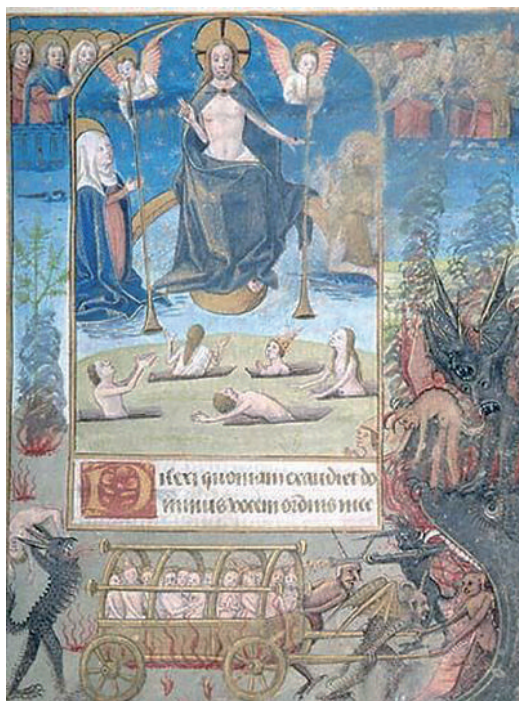 Dilexi quoniam exaudiet do
minus vocem mee